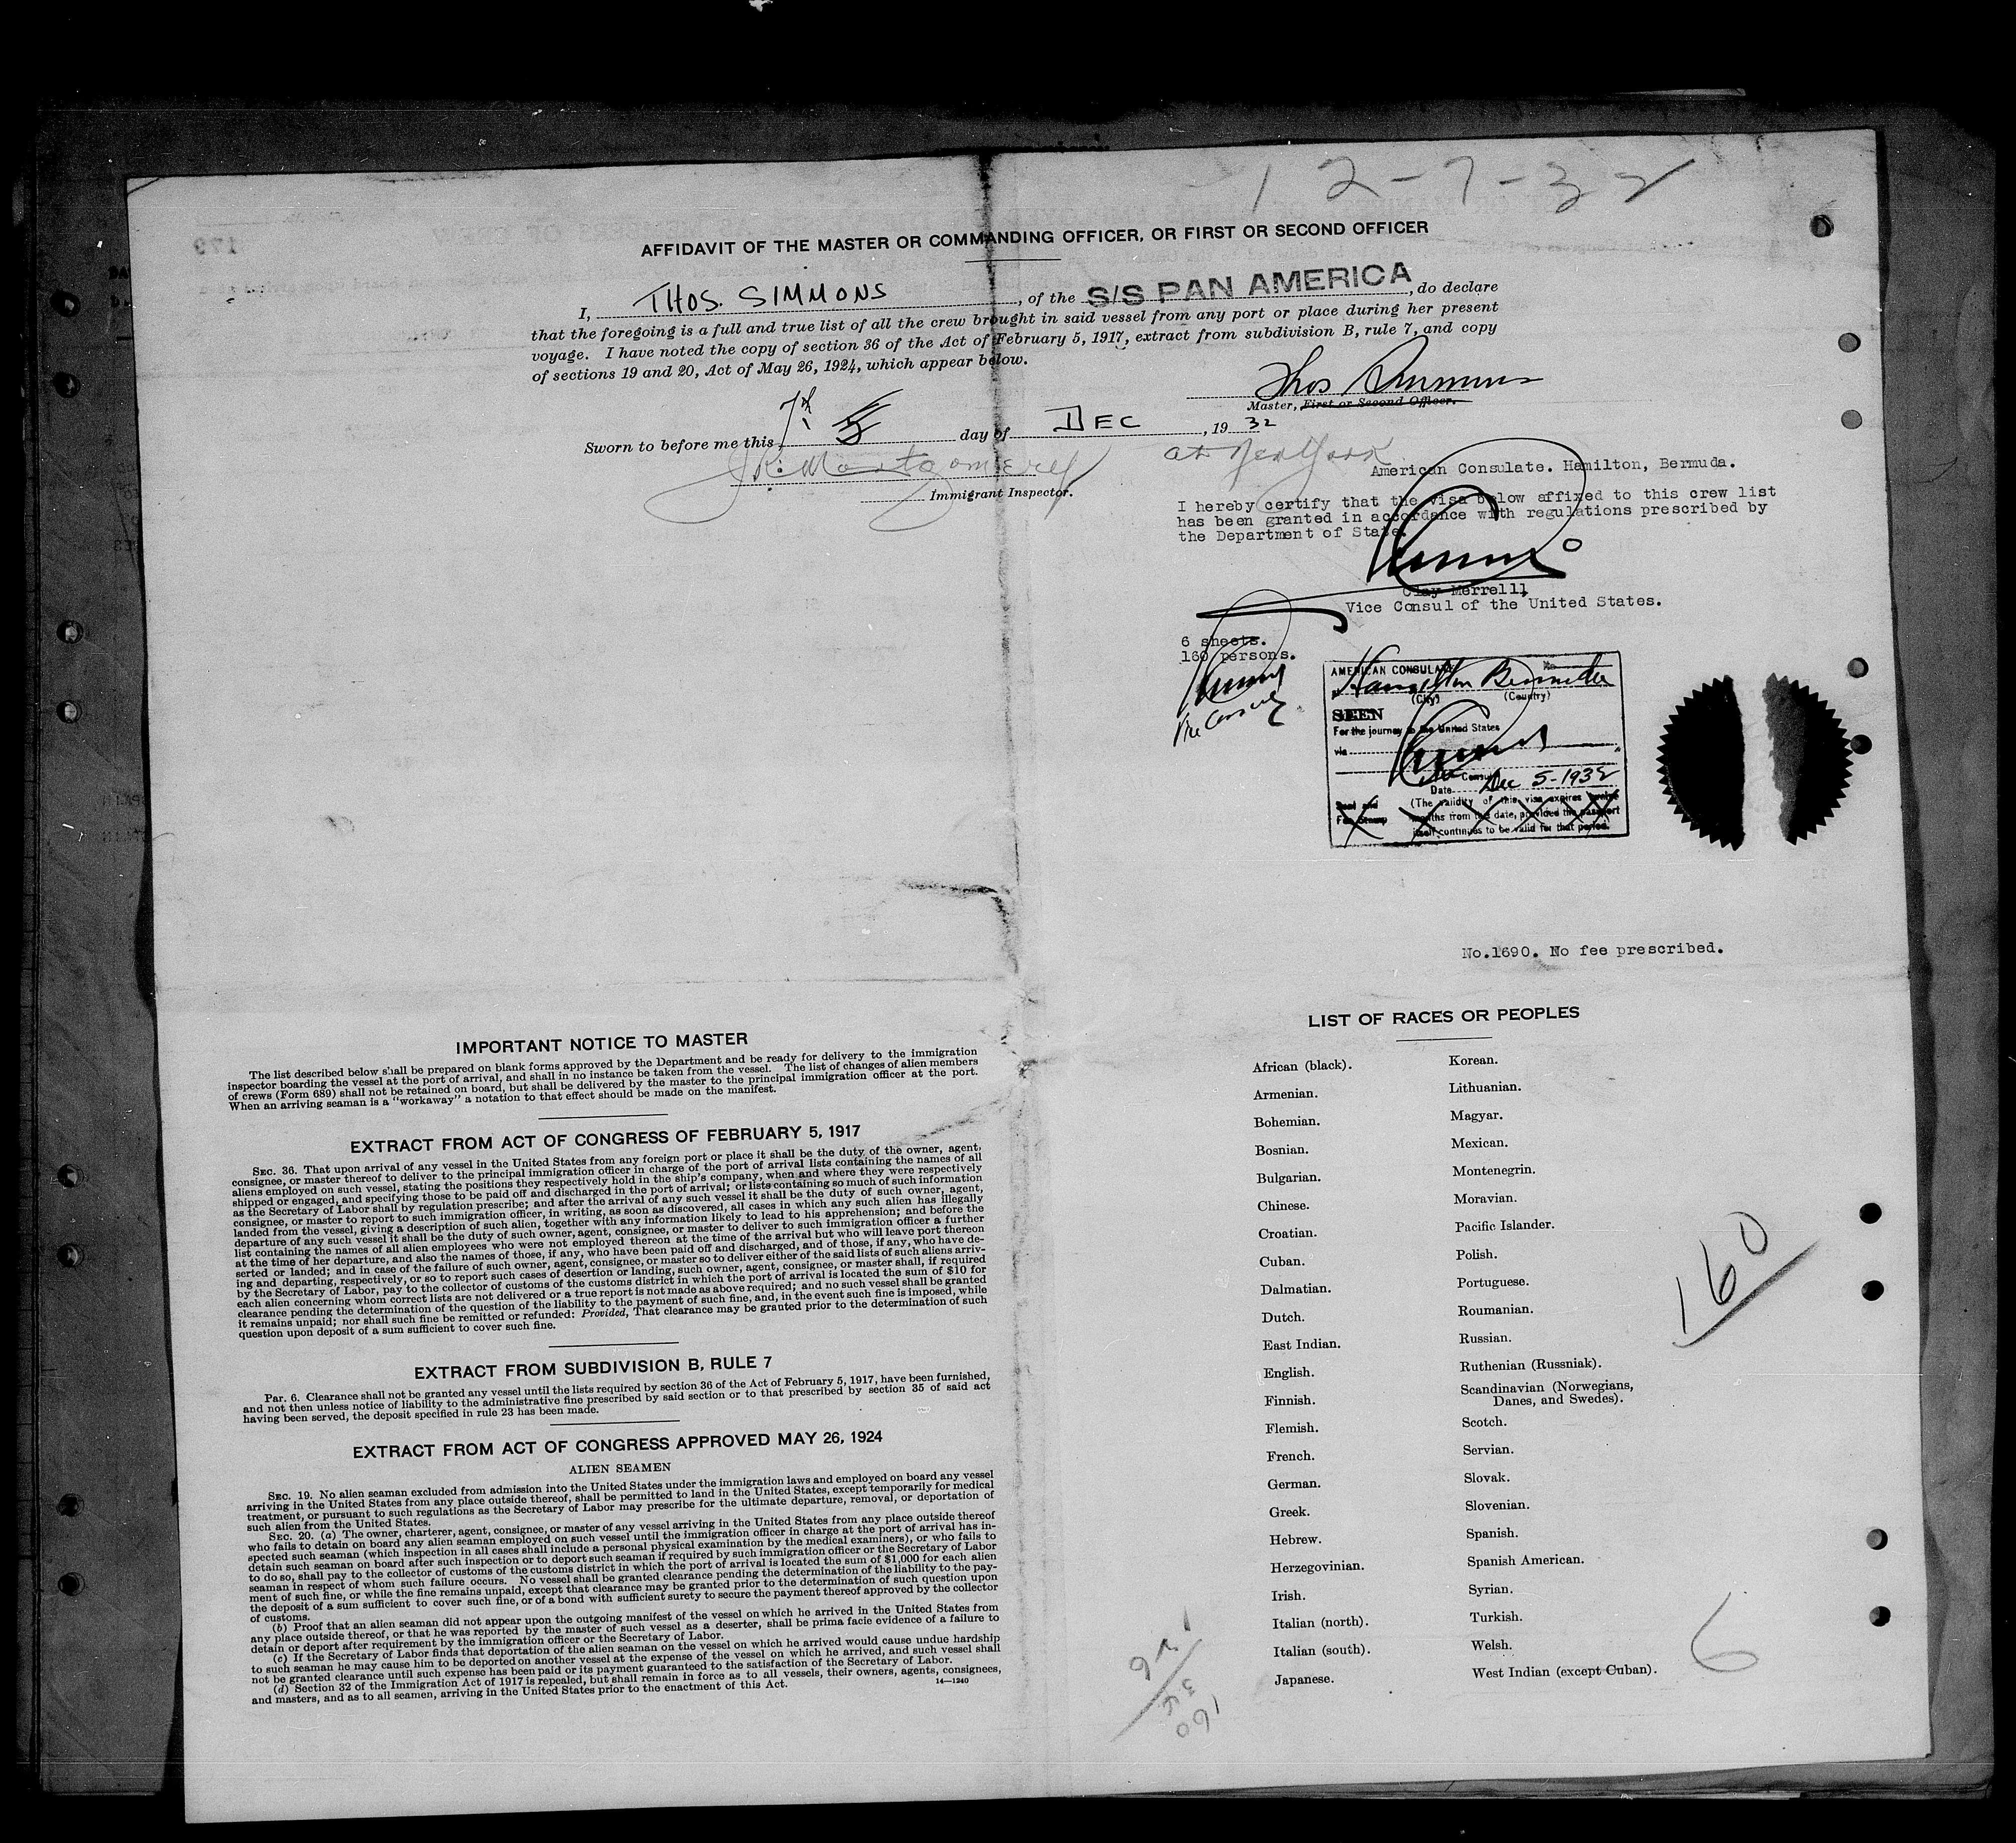 12-7-32
AFFIDAVIT OF THE MASTER OR COMMANDING OFFICER, OR FIRST OR SECOND OFFICER
I, THOS. SIMMONS, of the S/S PAN AMERICA, do declare
that the foregoing is a full and true list of all the crew brought in said vessel from any port or place during her present
voyage. I have noted the copy of section 36 of the Act of February 5, 1917, extract from subdivision B, rule 7, and copy
of sections 19 and 20, Act of May 26, 1924, which appear below.
Thos Simmons
Master, First or Second Officer.
Sworn to before me this 7th 5 day of DEC, 1932
at New York
J.R. Montgomery
Immigrant Inspector.
American Consulate. Hamilton, Bermuda.
I hereby certify that the visa below affixed to this crew list
has been granted in accordance with regulations prescribed by
the Department of State.
Clay Merrell,
Vice Consul of the United States.
6 sheets.
160 persons.
Vice Consul
AMERICAN CONSULATE
at Hamilton Bermuda
(City) (Country)
SEEN
For the journey to the United States
via
Vice Consul
Date Dec 5-1932
(The validity of this visa expires twelve
months from this date, provided the passport
itself continues to be valid for that period.
Seal and
Fee Stamp
No.1690. No fee prescribed.
IMPORTANT NOTICE TO MASTER
The list described below shall be prepared on blank forms approved by the Department and be ready for delivery to the immigration
inspector boarding the vessel at the port of arrival, and shall in no instance be taken from the vessel. The list of changes of alien members
of crews (Form 689) shall not be retained on board, but shall be delivered by the master to the principal immigration officer at the port.
When an arriving seaman is a "workaway" a notation to that effect should be made on the manifest.
EXTRACT FROM ACT OF CONGRESS OF FEBRUARY 5, 1917
SEC. 36. That upon arrival of any vessel in the United States from any foreign port or place it shall be the duty of the owner, agent,
consignee, or master thereof to deliver to the principal immigration officer in charge of the port of arrival lists containing the names of all
aliens employed on such vessel, stating the positions they respectively hold in the ship's company, when and where they were respectively
shipped or engaged, and specifying those to be paid off and discharged in the port of arrival; or lists containing so much of such information
as the Secretary of Labor shall by regulation prescribe; and after the arrival of any such vessel it shall be the duty of such owner, agent,
consignee, or master to report to such immigration officer, in writing, as soon as discovered, all cases in which any such alien has illegally
landed from the vessel, giving a description of such alien, together with any information likely to lead to his apprehension; and before the
departure of any such vessel it shall be the duty of such owner, agent, consignee, or master to deliver to such immigration officer a further
list containing the names of all alien employees who were not employed thereon at the time of the arrival but who will leave port thereon
at the time of her departure, and also the names of those, if any, who have been paid off and discharged, and of those, if any, who have de-
serted or landed; and in case of the failure of such owner, agent, consignee, or master so to deliver either of the said lists of such aliens arriv-
ing and departing, respectively, or so to report such cases of desertion or landing, such owner, agent, consignee, or master shall, if required
by the Secretary of Labor, pay to the collector of customs of the customs district in which the port of arrival is located the sum of $10 for
each alien concerning whom correct lists are not delivered or a true report is not made as above required; and no such vessel shall be granted
clearance pending the determination of the question of the liability to the payment of such fine, and, in the event such fine is imposed, while
it remains unpaid; nor shall such fine be remitted or refunded: Provided, That clearance may be granted prior to the determination of such
question upon deposit of a sum sufficient to cover such fine.
EXTRACT FROM SUBDIVISION B, RULE 7
PAR. 6. Clearance shall not be granted any vessel until the lists required by section 36 of the Act of February 5, 1917, have been furnished,
and not then unless notice of liability to the administrative fine prescribed by said section or to that prescribed by section 35 of said act
having been served, the deposit specified in rule 23 has been made.
EXTRACT FROM ACT OF CONGRESS APPROVED MAY 26, 1924
ALIEN SEAMEN
SEC. 19. No alien seaman excluded from admission into the United States under the immigration laws and employed on board any vessel
arriving in the United States from any place outside thereof, shall be permitted to land in the United States, except temporarily for medical
treatment, or pursuant to such regulations as the Secretary of Labor may prescribe for the ultimate departure, removal, or deportation of
such alien from the United States.
SEC. 20. (a) The owner, charterer, agent, consignee, or master of any vessel arriving in the United States from any place outside thereof
who fails to detain on board any alien seaman employed on such vessel until the immigration officer in charge at the port of arrival has in-
spected such seaman (which inspection in all cases shall include a personal physical examination by the medical examiners), or who fails to
detain such seaman on board after such inspection or to deport such seaman if required by such immigration officer or the Secretary of Labor
to do so, shall pay to the collector of customs of the customs district in which the port of arrival is located the sum of $1,000 for each alien
seaman in respect of whom such failure occurs. No vessel shall be granted clearance pending the determination of the liability to the pay-
ment of such fine, or while the fine remains unpaid, except that clearance may be granted prior to the determination of such question upon
the deposit of a sum sufficient to cover such fine, or of a bond with sufficient surety to secure the payment thereof approved by the collector
of customs.
(b) Proof that an alien seaman did not appear upon the outgoing manifest of the vessel on which he arrived in the United States from
any place outside thereof, or that he was reported by the master of such vessel as a deserter, shall be prima facie evidence of a failure to
detain or deport after requirement by the immigration officer or the Secretary of Labor.
(c) If the Secretary of Labor finds that deportation of the alien seaman on the vessel on which he arrived would cause undue hardship
to such seaman he may cause him to be deported on another vessel at the expense of the vessel on which he arrived, and such vessel shall
not be granted clearance until such expense has been paid or its payment guaranteed to the satisfaction of the Secretary of Labor.
(d) Section 32 of the Immigration Act of 1917 is repealed, but shall remain in force as to all vessels, their owners, agents, consignees,
and masters, and as to all seamen, arriving in the United States prior to the enactment of this Act.
14—1240
LIST OF RACES OR PEOPLES
African (black).
Armenian.
Bohemian.
Bosnian.
Bulgarian.
Chinese.
Croatian.
Cuban.
Dalmatian.
Dutch.
East Indian.
English.
Finnish.
Flemish.
French.
German.
Greek.
Hebrew.
Herzegovinian.
Irish.
Italian (north).
Italian (south).
Japanese.
Korean.
Lithuanian.
Magyar.
Mexican.
Montenegrin.
Moravian.
Pacific Islander.
Polish.
Portuguese.
Roumanian.
Russian.
Ruthenian (Russniak).
Scandinavian (Norwegians,
Danes, and Swedes).
Scotch.
Servian.
Slovak.
Slovenian.
Spanish.
Spanish American.
Syrian.
Turkish.
Welsh.
West Indian (except Cuban).
160
6
126
34
160
179